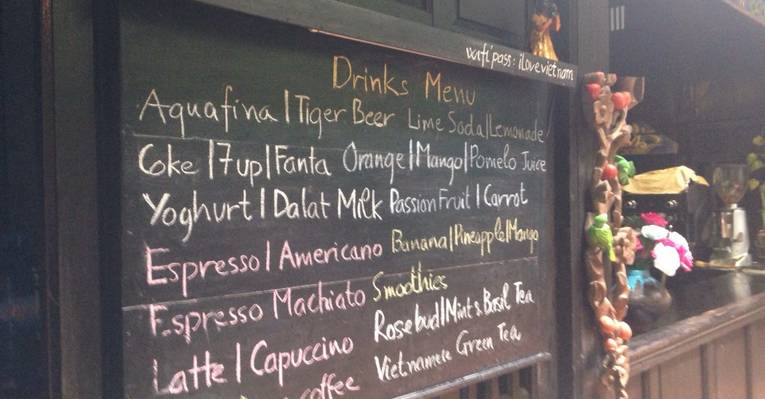 wifi pass: iLovevietnam
Drinks Menu
Aquafina | Tiger Beer Lime Soda | Lemonade
Coke | 7up | Fanta Orange | Mango | Pomelo Juice
Yoghurt | Dalat Milk Passion Fruit | Carrot
Espresso | Americano Banana | Pineapple | Mango
Espresso Machiato Smoothies
Latte | Capuccino Rosebud | Mint & Basil Tea
coffee Vietnamese Green Tea